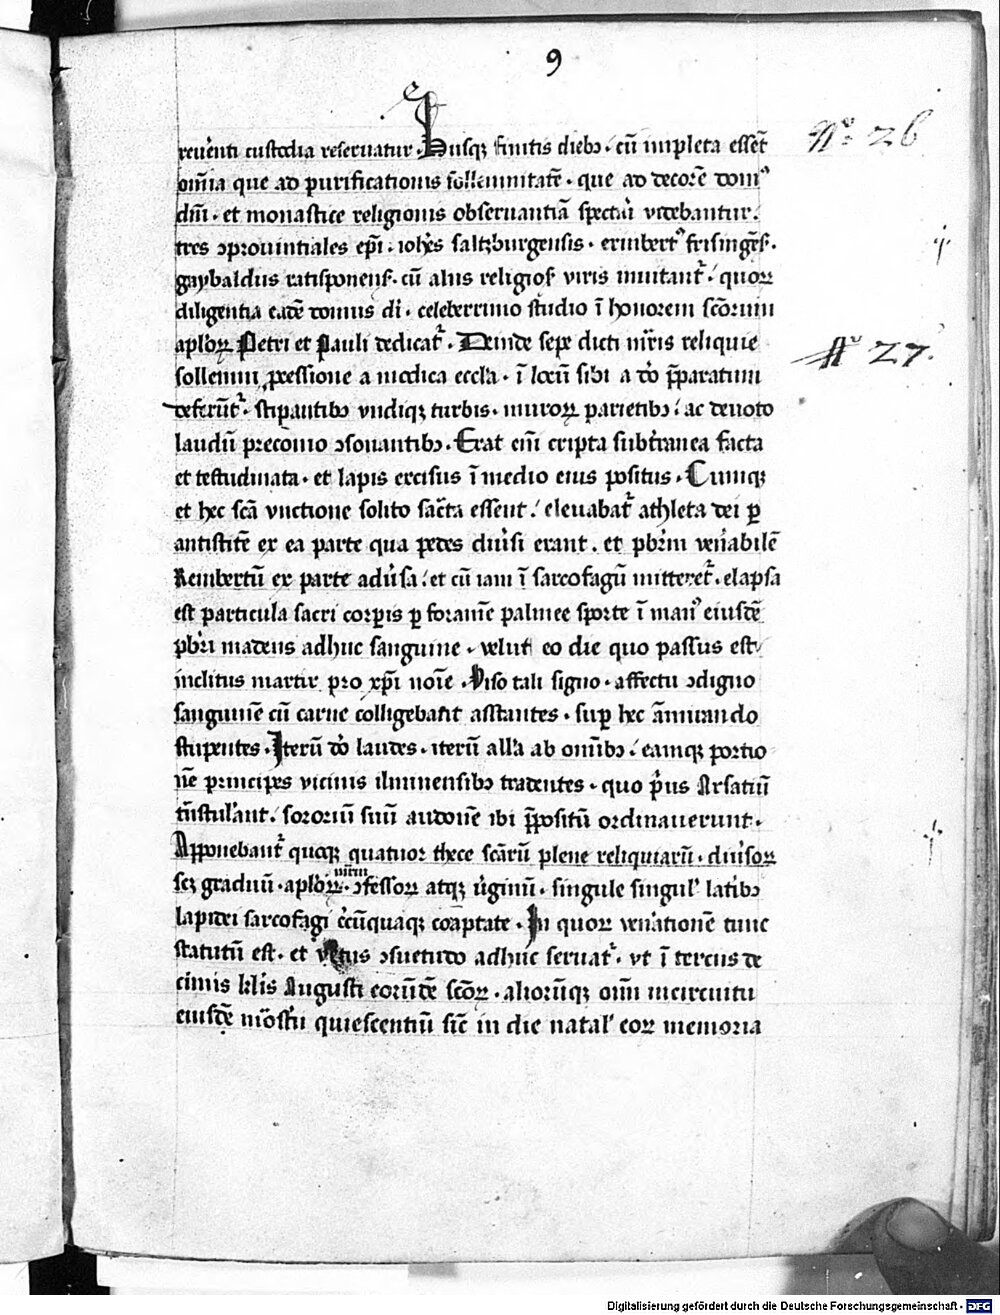 9
reuerēti custodia reseruatur · Husqꝫ finitis diebꝫ · cū impleta essēt
Nº 26
om̄ia que ad purificationis sollemnitatē · que ad decorē domꝰ
dn̄i · et monastice religionis obseruantiā spectar̄ videbantur ·
tres ꝯprouintiales ep̄i · ioh̄es saltzburgensis · erimbertꝰ frisingēs̄ ·
gaybaldus ratisponens̄ · cū alijs religios̄ viris inuitant̄ · quoꝝ
diligentia eadē domus di · celeberrimo studio ī honorem sc̄orum
apl̄oꝝ Petri et Pauli dedicat̄ · Deinde sepe dicti mr̄is reliquie
Nº 27.
sollemni ꝓcessione a modica eccl̄a · ī locū sibi a dō p̄paratum
deferūt̄ · stipantibꝫ vndiqꝫ turbis · muroꝝ parietibꝫ · ac deuoto
laudū preconio ꝯsonantibꝫ · Erat em̄ cripta subt̄ranea facta
et testudinata · et lapis excisus ī medio eius positus · Cumqꝫ
et hec sc̄a vnctione solito sac̄ta essent · eleuabat̄ athleta dei ꝑ
antistitē ex ea parte qua pedes diūsi erant · et pb̄rm ven̄abilē
Reimbertū ex parte adūsa · et cū iam ī sarcofagū mitteret̄ · elapsa
est particula sacri corpis ꝑ foramē palmee sporte ī manꝰ eiusdē
pb̄ri madens adhuc sanguine · velut eo die quo passus est
inclitus martir pro xp̄i noīe · Viso tali signo · affectu ꝯdigno
sanguinē cū carne colligebant astantes · suꝑ hec āmirando
stupentes · Iterū dō laudes · iterū all̄a ab om̄ibꝫ · eamqꝫ portio
nē principes vicinis ilminensibꝫ tradentes · quo p̄us Arsatiū
tn̄stulerant · sororiū suū audonē ibi p̄positū ordinauerunt ·
Apponebant̄ quoqꝫ quatuor thece sc̄arū plene reliquiarū · diūsoꝝ
scꝫ graduū · apl̄oꝝ · mr̄m · ꝯfessoꝝ atqꝫ v̄ginū · singule singul' latibꝫ
lapidei sarcofagi c̄cūquaqꝫ coaptate · In quoꝝ ven̄ationē tunc
statutū est · et vetus ꝯsuetudo adhuc seruat̄ · vt ī tercius de
cimis kl̄is Augusti eorūdē sc̄oꝝ · aliorūqꝫ om̄ incircuitu
eiusdē mōst̄ii quiescentiū sic̄ in die natal' eoꝝ memoria
Digitalisierung gefördert durch die Deutsche Forschungsgemeinschaft · DFG